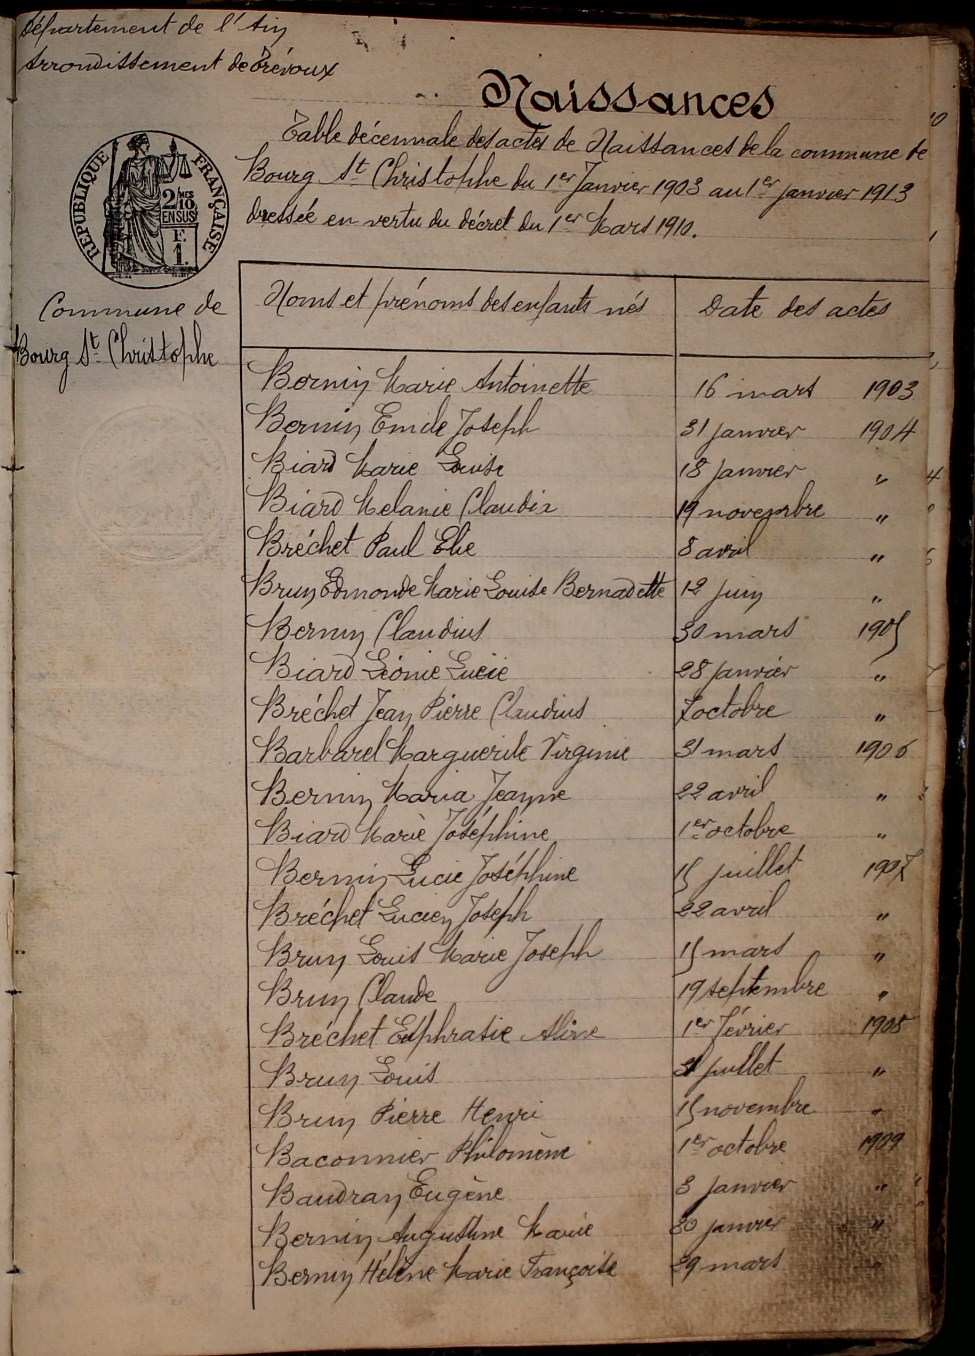 Département de l'Ain
Arrondissement de Trévoux
Naissances
Table décennale des actes de Naissances de la commune de
Bourg St Christophe du 1er Janvier 1903 au 1er janvier 1913
dressée en vertu du décret du 1er Mars 1910.
RÉPUBLIQUE FRANÇAISE
2/10 MES
EN SUS
F.
1.
Commune de
Bourg St Christophe
Noms et prénoms des enfants nés Date des actes
Bernin Marie Antoinette 16 mars 1903
Bernin Emile Joseph 31 janvier 1904
Biard Marie Louise 18 janvier "
Biard Melanie Claudia 19 novembre "
Bréchet Paul Elie 8 avril "
Brun Edmonde Marie Louise Bernadette 12 juin "
Bernin Claudius 30 mars 1905
Biard Léonie Lucie 28 janvier "
Bréchet Jean Pierre Claudius 7 octobre "
Barbarel Marguerite Virginie 31 mars 1906
Bernin Maria Jeanne 22 avril "
Biard Marie Joséphine 1er octobre "
Bernin Lucie Joséphine 15 juillet 1907
Bréchet Lucien Joseph 22 avril "
Brun Louis Marie Joseph 15 mars "
Brun Claude 19 septembre "
Bréchet Euphrasie Aline 1er février 1908
Brun Louis juillet "
Brun Pierre Henri 15 novembre "
Baconnier Philomène 1er octobre 1909
Baudran Eugène 3 janvier "
Bernin Augustine Marie 30 janvier "
Bernin Hélène Marie Françoise 29 mars "